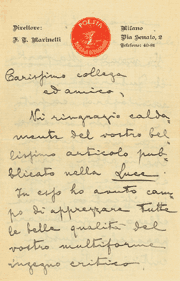 Direttore:
F. T. Marinetti
POESIA
Milano
Via Senato, 2
Telefono: 40-81
Carissimo collega
ed amico,
Vi ringrazio calda-
mente del vostro bel-
lissimo articolo pub-
blicato nella Luce.
In esso ho avuto cam-
po di apprezzare tutte
le belle qualità del
vostro multiforme
ingegno critico